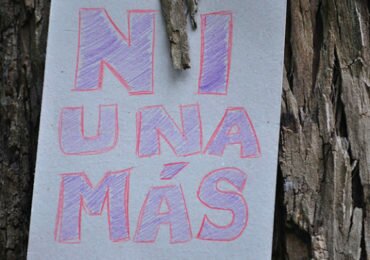 NI
UNA
MÁS